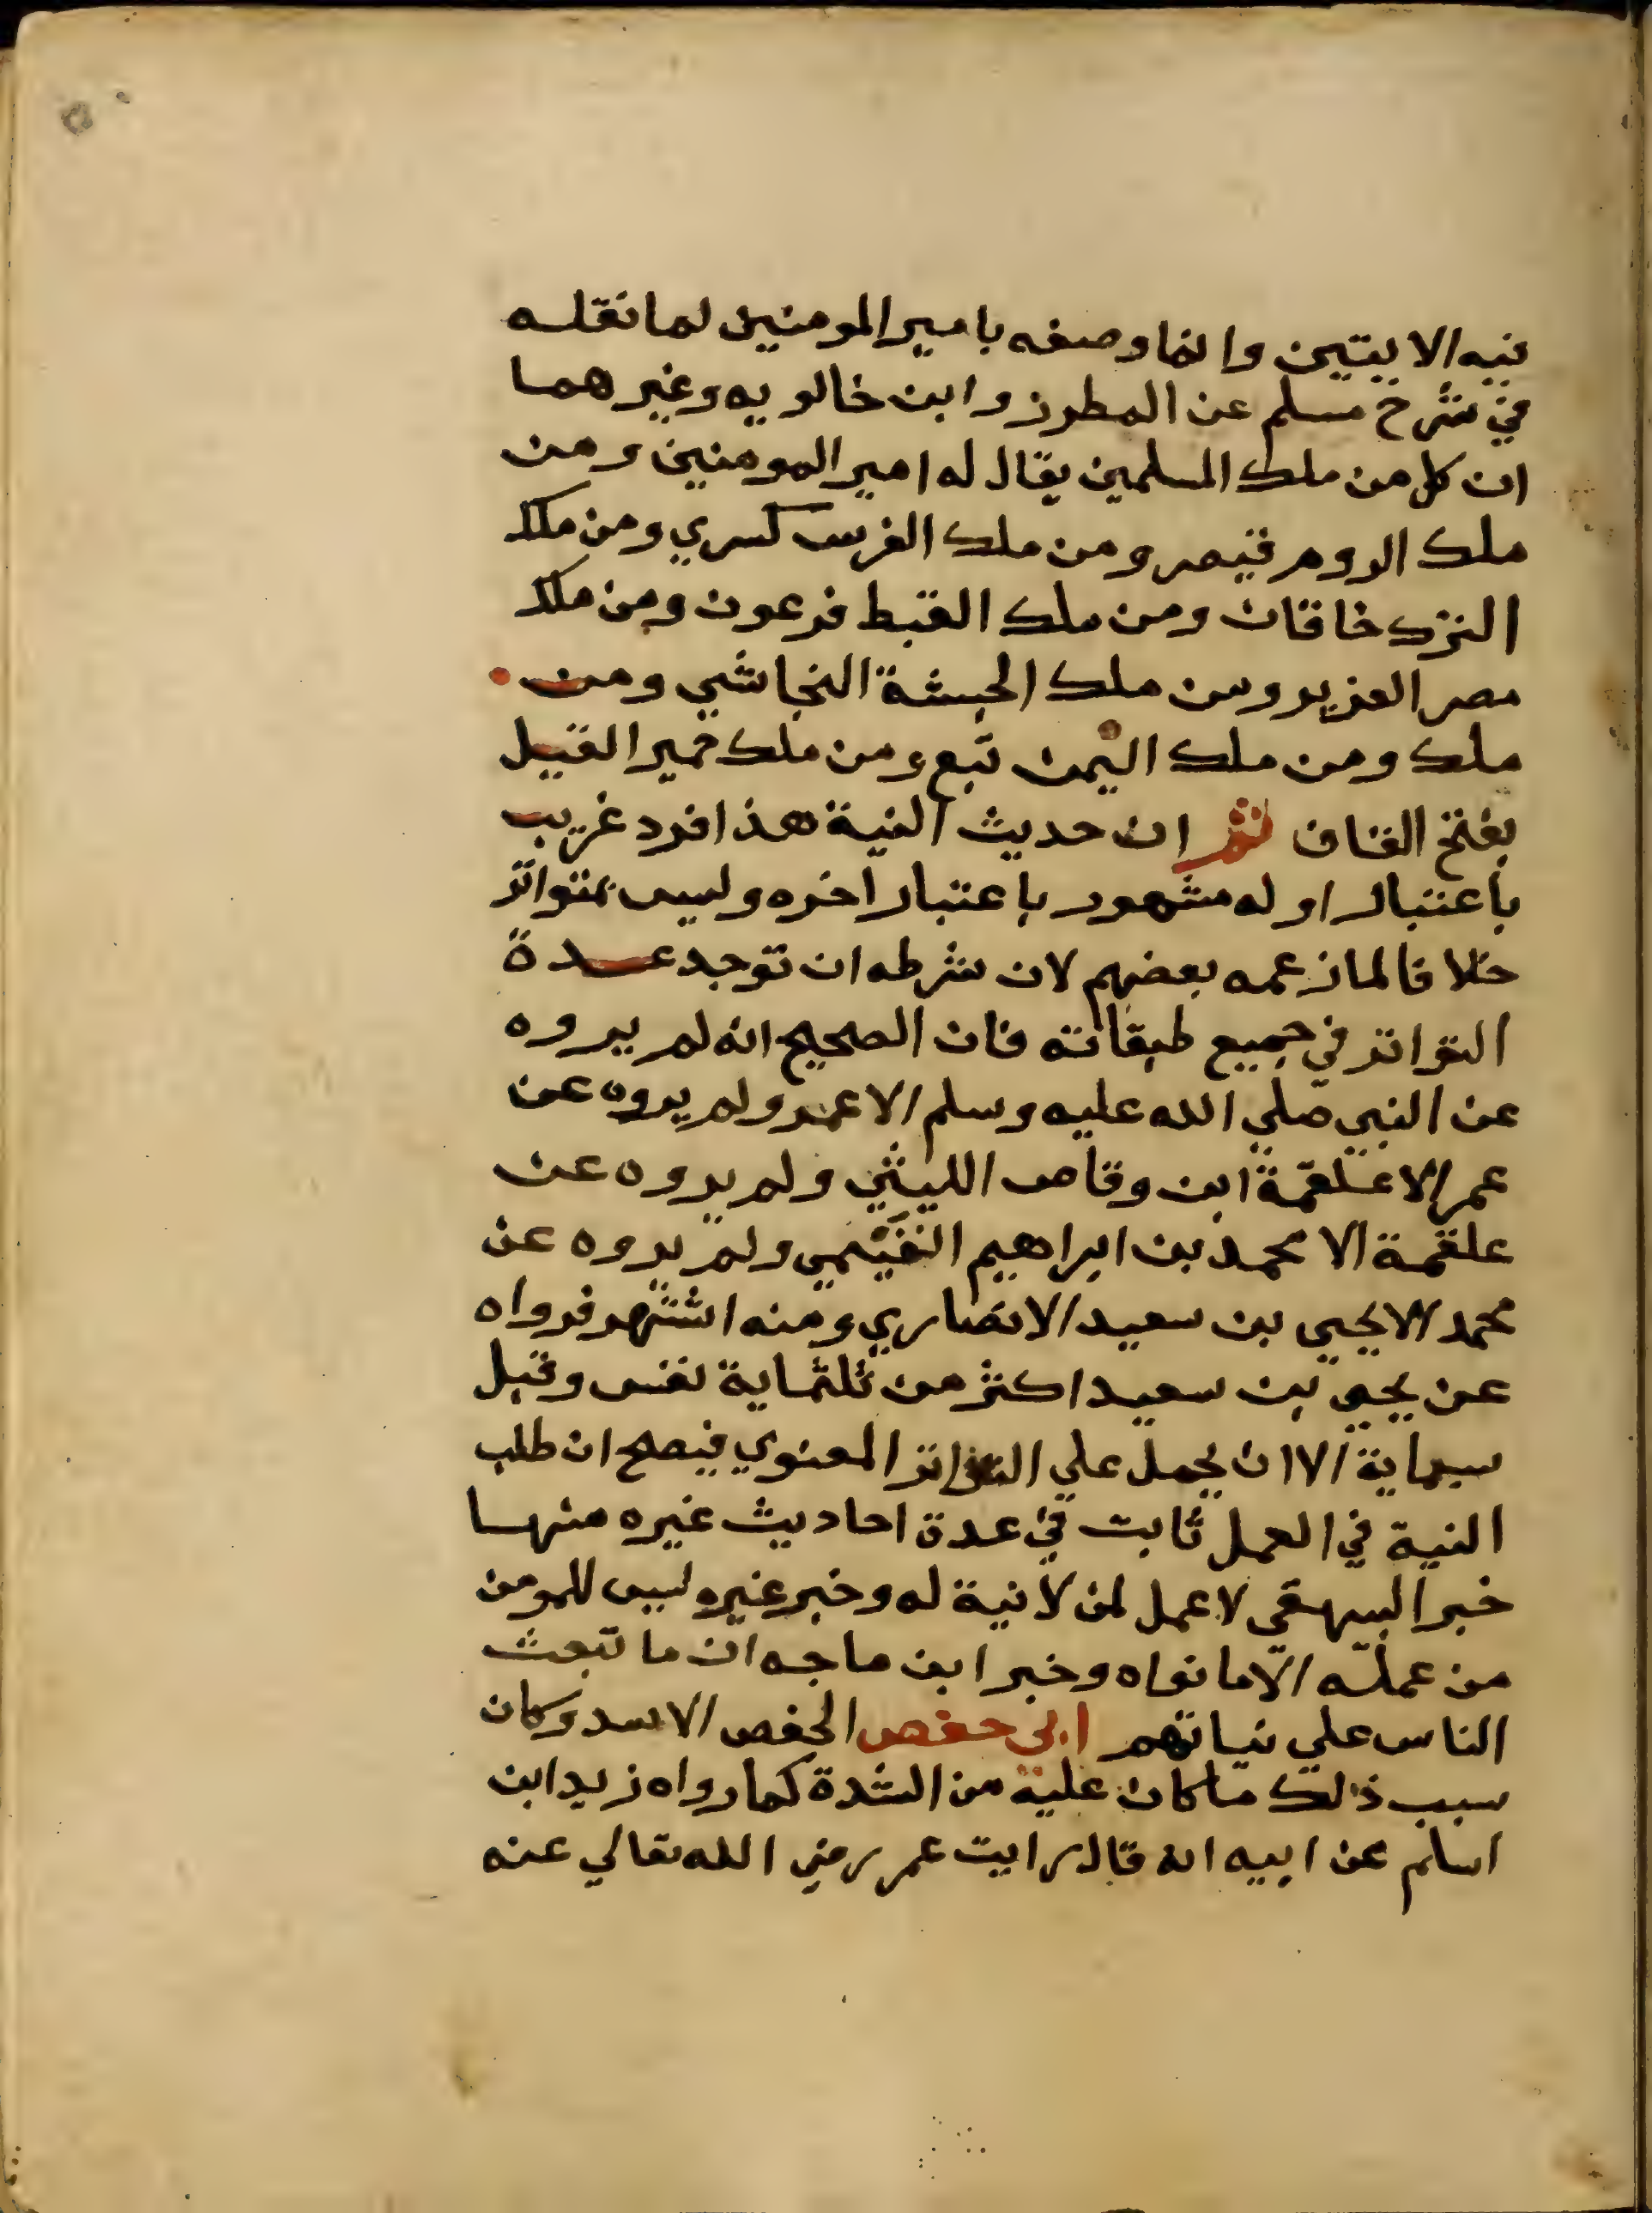 نيه الابيتين وانما وصفه بامير المومنين لما نقله
في شرح مسلم عن المطرز وابن خالويه وغيرهما
ان كل من ملك المسلمين يقال له امير المومنين ومن
ملك الروم قيصر ومن ملك الفرس كسري ومن ملك
الترك خاقان ومن ملك القبط فرعون ومن ملك
مصر العزيز ومن ملك الحبشة النجاشي ومن
ملك ومن ملك اليمن تبع ومن ملك حمير القيل
بفتح القاف ثم ان حديث النية هذا فرد غريب
باعتبار اوله مشهور باعتبار اخره وليس بمتواتر
خلافا لما زعمه بعضهم لان شرطه ان توجد عدة
التواتر في جميع طبقاته فان الصحيح انه لم يروه
عن النبي صلي الله عليه وسلم الا عمر ولم يروه عن
عمر الا علقمة ابن وقاص الليثي ولم يروه عن
علقمة الا محمد بن ابراهيم التيمي ولم يروه عن
محمد الا يحيي بن سعيد الانصاري ومنه اشتهر فرواه
عن يحيي بن سعيد اكثر من ثلثماية نفس وقيل
سبعماية الا ان يحمل علي التواتر المعنوي فيصح ان طلب
النية في العمل ثابت في عدة احاديث غيره منها
خبر البيهقي لا عمل لمن لا نية له وخبر غيره ليس للمومن
من عمله الا ما نواه وخبر ابن ماجه ان ما تبعث
الناس علي نياتهم ابي حفص الحفص الاسد وكان
سبب ذلك ما كان عليه من الشدة كما رواه زيد ابن
اسلم عن ابيه انه قال رايت عمر رضي الله تعالي عنه